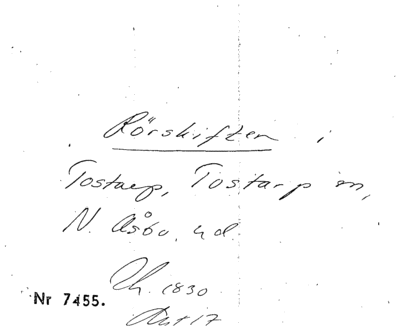 Rörskiften i
Tostarp, Tostarp m,
N. Åsbo, hd.
Ch. 1830
Nr 7455.
Akt 17